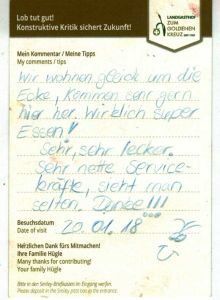 Lob tut gut!
Konstruktive Kritik sichert Zukunft!
LANDGASTHOF
ZUM
GOLDENEN
KREUZ
Mein Kommentar / Meine Tipps
My comments / tips
Wir wohnen gleich um die
Ecke, kommen sehr gern
hier her. Wirklich super
Essen!
Sehr, sehr lecker.
Sehr nette Service-
kräfte, sieht man
selten. Danke!!!
Besuchsdatum
Date of visit
20.01.18
Herzlichen Dank fürs Mitmachen!
Ihre Familie Hügle
Many thanks for contributing!
Your family Hügle
Bitte in den Smiley-Briefkasten im Eingang werfen.
Please deposit in the Smiley post box at the entrance.